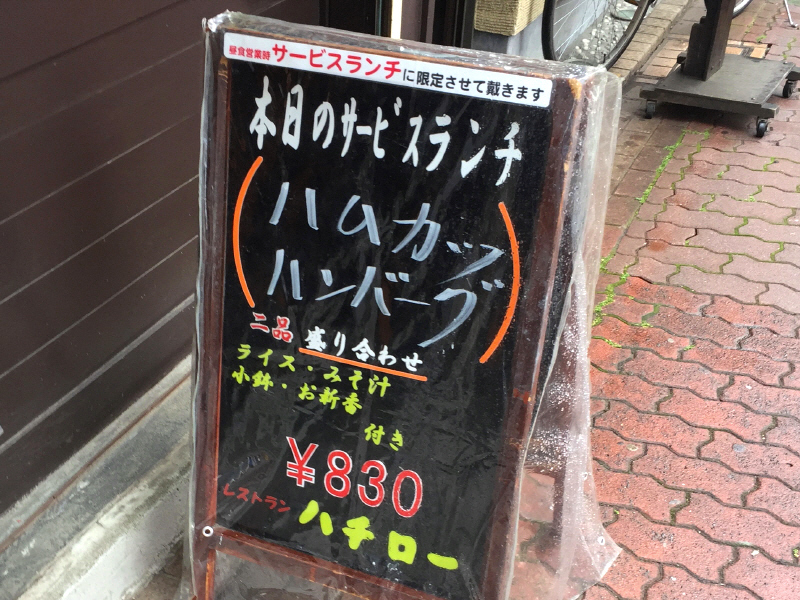 昼食営業時サービスランチに限定させて戴きます
本日のサービスランチ
ハムカツ
ハンバーグ
二品 盛り合わせ
ライス・みそ汁
小鉢・お新香
付き
¥830
レストラン ハチロー